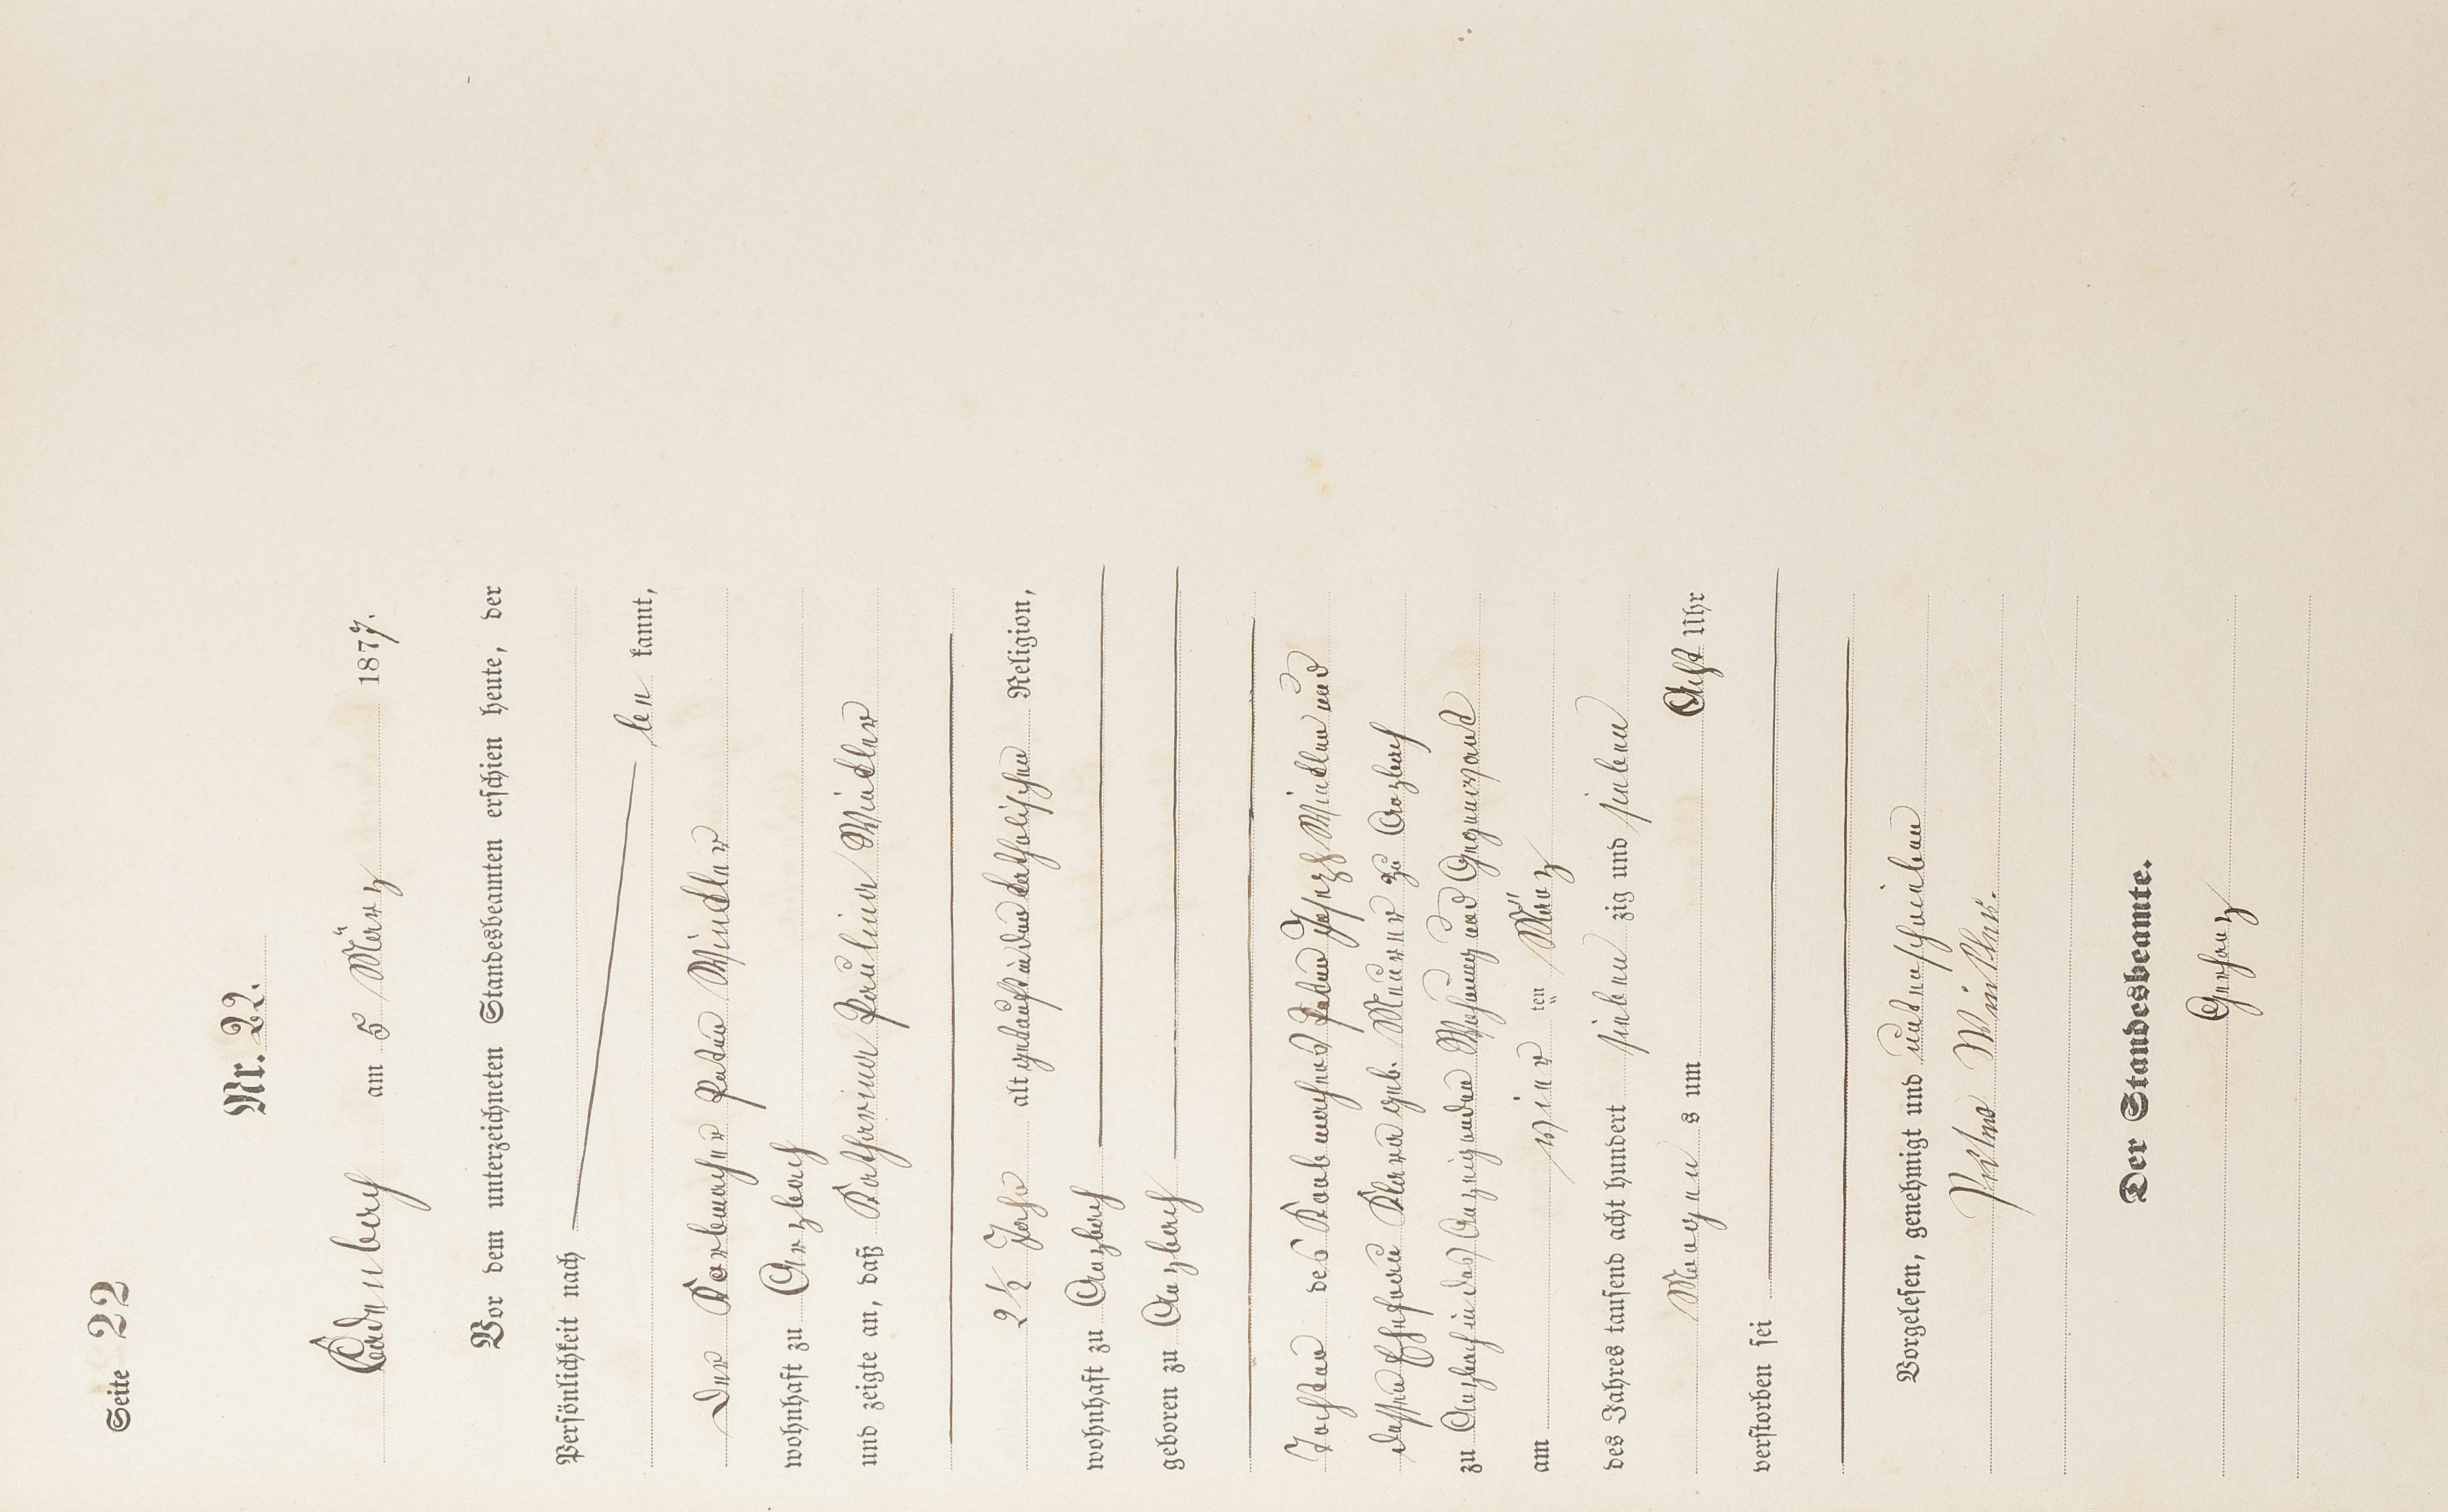 Seite 22
Nr. 22.
Cadenbach am 5 März 1877.
Vor dem unterzeichneten Standesbeamten erschien heute, der
Persönlichkeit nach
be kannt,
der Korbmacher Peter Winkler
wohnhaft zu Arzbach
und zeigte an, daß Katharina Paulina Winkler
2 1/2 Jahr alt katholischer Religion,
wohnhaft zu Arzbach
geboren zu Arzbach
Tochter des Korbmachers Peter Joseph Winkler und
dessen Ehefrau Klara geb. Meurer zu Arzbach
zu Arzbach in des Anzeigenden Wohnung und Gegenwart
am vier ten März
des Jahres tausend acht hundert sieben zig und sieben
Morgen s um Acht Uhr
verstorben sei
Vorgelesen, genehmigt und unterschrieben
Peter Winkler.
Der Standesbeamte.